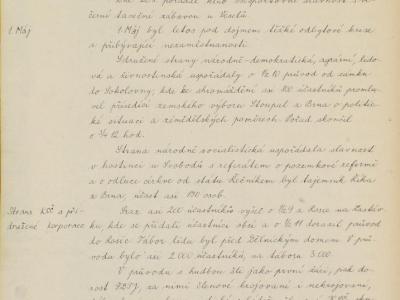 1. Máj
1. Máj byl letos pod dojmem těžké odbytové krise
a přibývající nezaměstnanosti.
Sdružené strany národně-demokratická, agrární, lidová
a živnostenská uspořádaly o ½ 10 průvod od zámku
do Sokolovny, kde ke shromáždění asi 400 účastníků promluvil
přísedící zemského výboru Stoupal z Brna o politické
situaci a zemědělských poměrech. Pořad skončil
o ½ 12 hod.
Strana národně socialistická uspořádala slavnost
v hostinci u Svobodů s referátem o pozemkové reformě
a o odluce církve od státu. Řečníkem byl tajemník
z Brna, účast asi 190 osob.
Strana KSČ a přidružené
korporace
Sraz asi 200 účastníků vyšel o ½ 9 z Rosic na Zastávku,
kde se přidali účastníci obcí a o ½ 11 dorazil průvod
do Rosic. Tábor lidu byl před Dělnickým domem. V průvodu
bylo asi 2.000 účastníků, na táboru 3.000.
V průvodu s hudbou šli jako první žáci, pak dorost
, za nimi členové krojovaní i nekrojovaní,